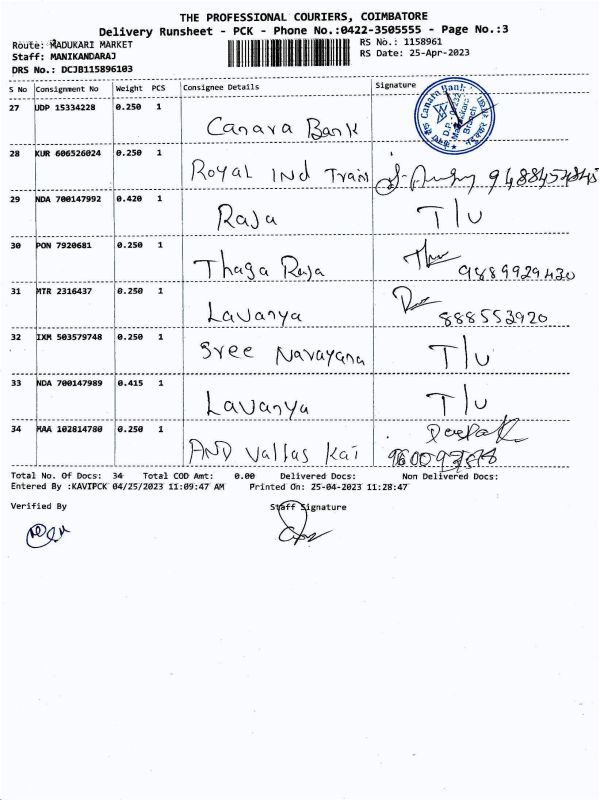 THE PROFESSIONAL COURIERS, COIMBATORE
Delivery Runsheet - PCK - Phone No.:0422-3505555 - Page No.:3
Route: MADUKARI MARKET
RS No.: 1158961
Staff: MANIKANDARAJ
RS Date: 25-Apr-2023
DRS No.: DCJB115896103
S No Consignment No Weight PCS Consignee Details Signature
27 UDP 15334228 0.250 1 Canara Bank
Canara Bank
Branch
28 KUR 606526024 0.250 1 Royal Ind Train
29 NDA 700147992 0.420 1 Raja T/u
30 PON 7920681 0.250 1 Thaga Raja
9889929430
31 MTR 2316437 0.250 1 Lavanya
888553920
32 IXM 503579748 0.250 1 Sree Narayana T/u
33 NDA 700147989 0.415 1 Lavanya T/u
34 MAA 102814780 0.250 1 AND Vallas Kai Deepak
Total No. Of Docs: 34 Total COD Amt: 0.00 Delivered Docs: Non Delivered Docs:
Entered By :KAVIPCK 04/25/2023 11:09:47 AM Printed On: 25-04-2023 11:28:47
Verified By Staff Signature